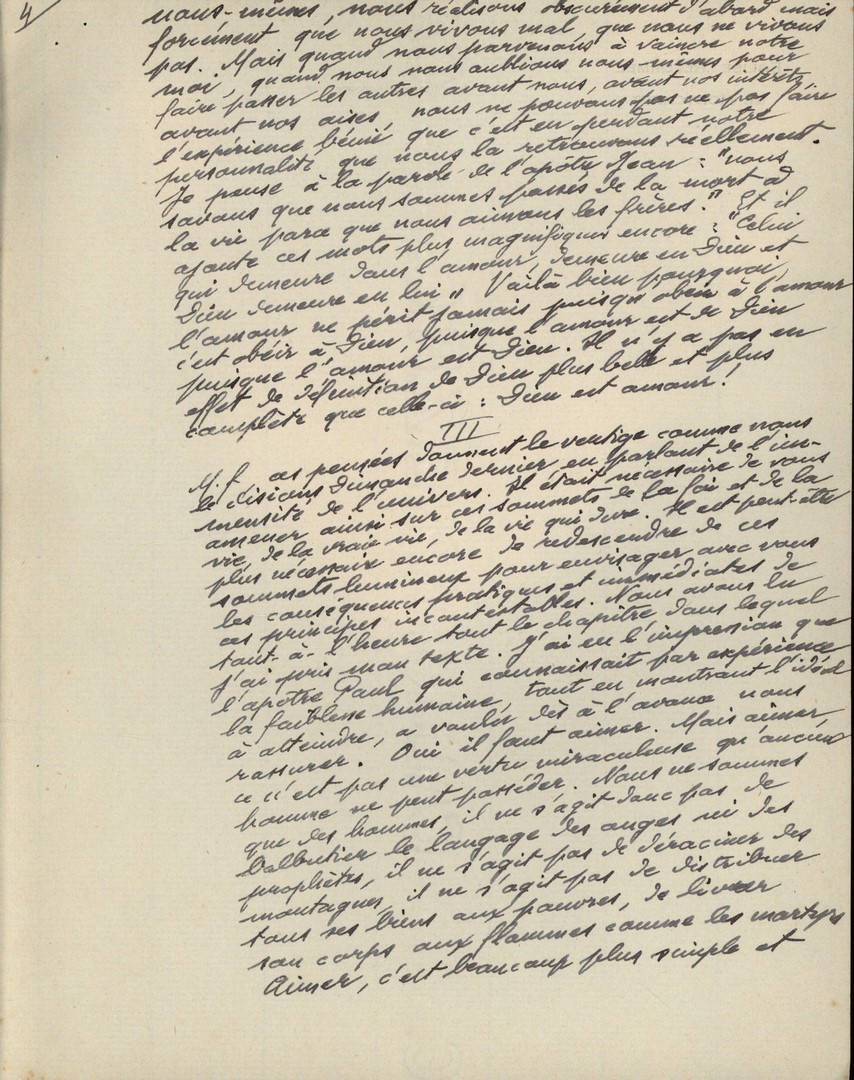 4
nous-mêmes, nous réalisons obscurément d'abord mais
forcément que nous vivons mal, que nous ne vivons
pas. Mais quand nous parvenons à vaincre notre
moi, quand nous nous oublions nous-mêmes pour
faire passer les autres avant nous, avant nos intérêts,
avant nos aises, nous ne pouvons pas ne pas faire
l'expérience bénie que c'est en perdant notre
personnalité que nous la retrouvons réellement.
Je pense à la parole de l'apôtre Jean : "nous
savons que nous sommes passés de la mort à
la vie parce que nous aimons les frères." Et il
ajoute ces mots plus magnifiques encore : "Celui
qui demeure dans l'amour, demeure en Dieu et
Dieu demeure en lui" Voilà bien pourquoi
l'amour ne périt jamais puisqu'obéir à l'amour
c'est obéir à Dieu, puisque l'amour est de Dieu
puisque l'amour est Dieu. Il n'y a pas en
effet de définition de Dieu plus belle et plus
complète que celle-ci : Dieu est amour !
III
M. f. ces pensées donnent le vertige comme nous
le disions dimanche dernier en parlant de l'im-
mensité de l'univers. Il était nécessaire de vous
amener ainsi sur ces sommets de la foi et de la
vie, de la vraie vie, de la vie qui dure. Il est peut-être
plus nécessaire encore de redescendre de ces
sommets lumineux pour envisager avec vous
les conséquences pratiques et immédiates de
ces principes incontestables. Nous avons lu
tout-à-l'heure tout le chapitre dans lequel
j'ai pris mon texte. J'ai eu l'impression que
l'apôtre Paul qui connaissait par expérience
la faiblesse humaine, tout en montrant l'idéal
à atteindre, a voulu dès à l'avance nous
rassurer. Oui il faut aimer. Mais aimer,
ce n'est pas une vertu miraculeuse qu'aucun
homme ne peut posséder. Nous ne sommes
que des hommes, il ne s'agit donc pas de
balbutier le langage des anges ni des
prophètes, il ne s'agit pas de déraciner des
montagnes, il ne s'agit pas de distribuer
tous ses biens aux pauvres, de livrer
son corps aux flammes comme les martyrs
Aimer, c'est beaucoup plus simple et